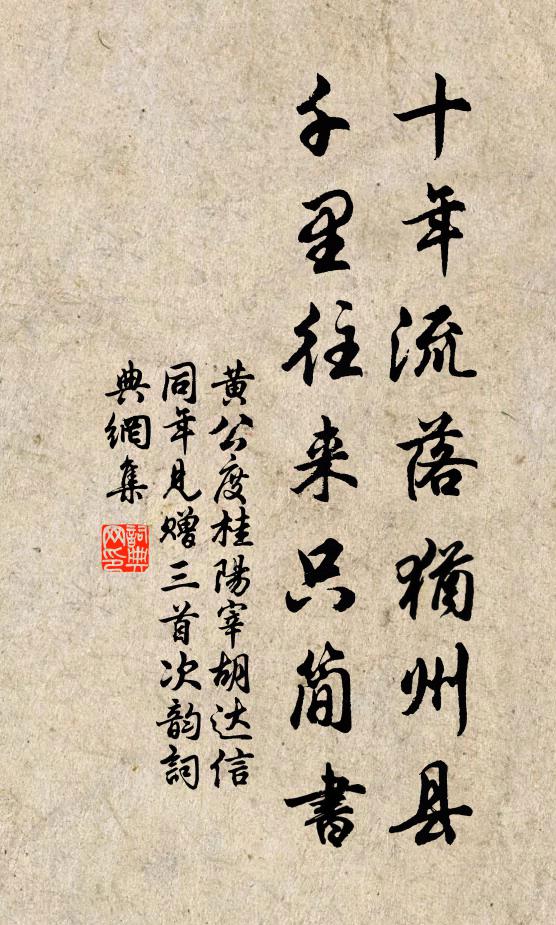 十年流落犹州县
千里往来只简書
黄公度桂陽宰胡达信
同年見赠三首次韵詞
典網集
詞典
网印